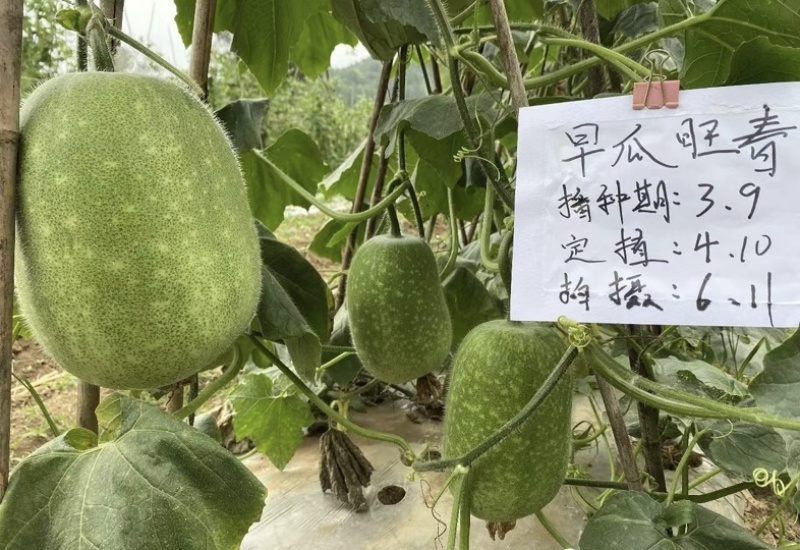 早瓜旺青
播种期:3.9
定植:4.10
拍摄:6.11